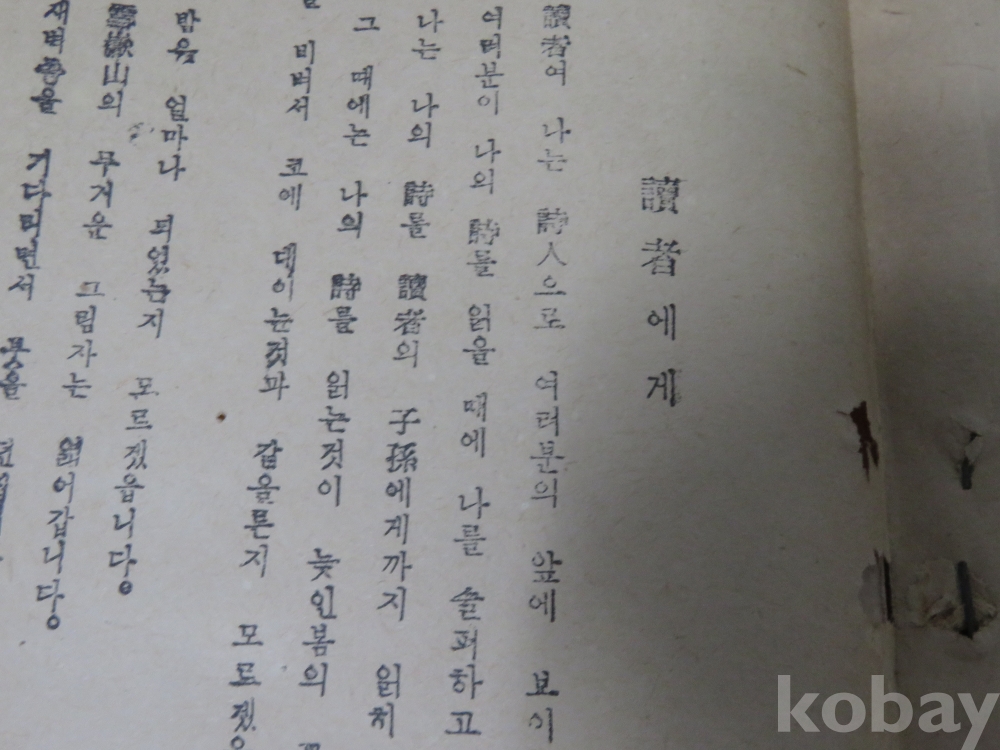 讀者에게
讀者여 나는 詩人으로 여러분의 앞에 보이
여러분이 나의 詩를 읽을 때에 나를 슬퍼하고
나는 나의 詩를 讀者의 子孫에게까지 읽히
그 때에는 나의 詩를 읽는것이 늦인봄의
비벼서 코에 대이는것과 같을른지 모르겠
밤은 얼마나 되었는지 모르겠읍니다。
雪嶽山의 무거운 그림자는 엷어갑니다。
새벽종을 기다리면서 붓을
kobay